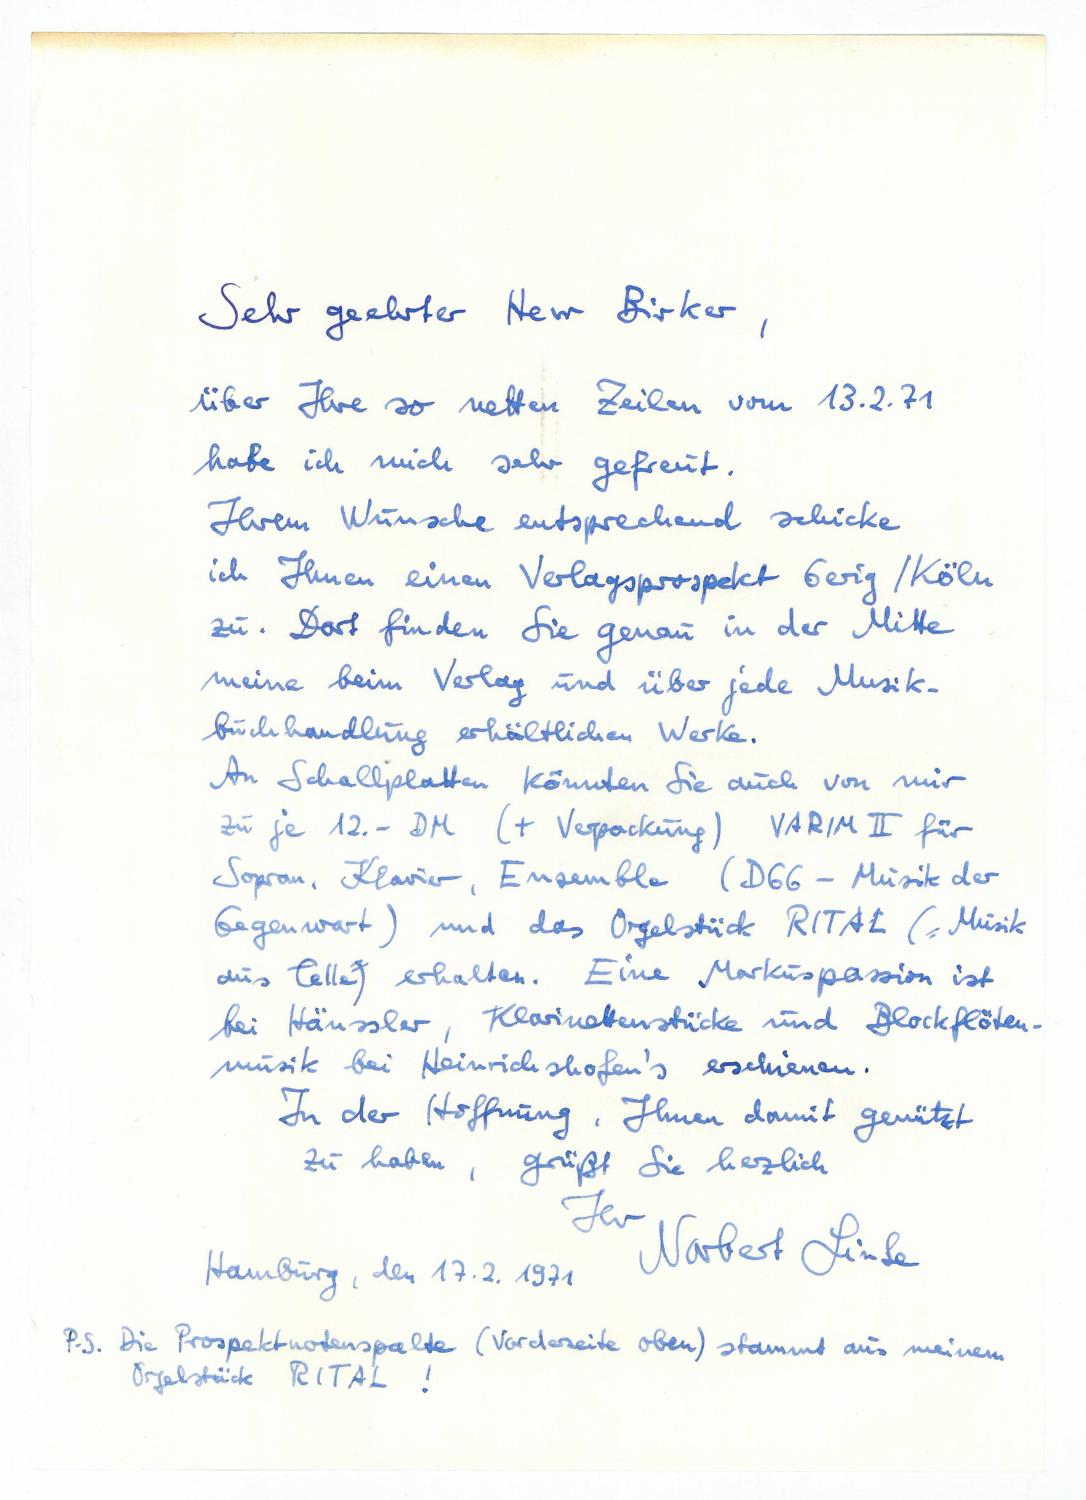 Sehr geehrter Herr Birker,
über Ihre so netten Zeilen vom 13.2.71
habe ich mich sehr gefreut.
Ihrem Wunsche entsprechend schicke
ich Ihnen einen Verlagsprospekt Gerig/Köln
zu. Dort finden Sie genau in der Mitte
meine beim Verlag und über jede Musik-
buchhandlung erhältlichen Werke.
An Schallplatten könnten Sie auch von mir
zu je 12.- DM (+ Verpackung) VARIM II für
Sopran, Klavier, Ensemble (D66 - Musik der
Gegenwart) und das Orgelstück RITAL („Musik
aus Celle") erhalten. Eine Markuspassion ist
bei Hänssler, Klarinettenstücke und Blockflöten-
musik bei Heinrichshofen's erschienen.
In der Hoffnung, Ihnen damit genützt
zu haben, grüßt Sie herzlich
Ihr Norbert Linke
Hamburg, den 17.2.1971
P.S. Die Prospektnotenspalte (Vorderseite oben) stammt aus meinem
Orgelstück RITAL !